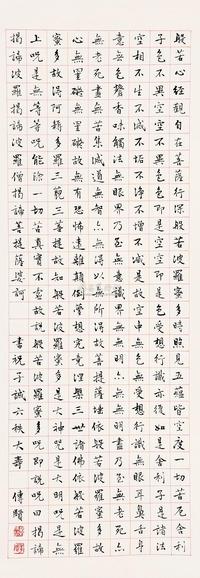 般若心經觀自在菩薩行深般若波羅蜜多時照見五蘊皆空度一切苦厄舍利
子色不異空空不異色色即是空空即是色受想行識亦復如是舍利子是諸法
空相不生不滅不垢不淨不增不減是故空中無色無受想行識無眼耳鼻舌身
意無色聲香味觸法無眼界乃至無意識界無無明亦無無明盡乃至無老死亦
無老死盡無苦集滅道無智亦無得以無所得故菩提薩埵依般若波羅蜜多故
心無罣礙無罣礙故無有恐怖遠離顛倒夢想究竟涅槃三世諸佛依般若波羅
蜜多故得阿耨多羅三藐三菩提故知般若波羅蜜多是大神咒是大明咒是無
上咒是無等等咒能除一切苦真實不虛故說般若波羅蜜多咒即說咒曰揭諦
揭諦波羅揭諦波羅僧揭諦菩提薩婆訶 書祝子誠六秩大壽 傅